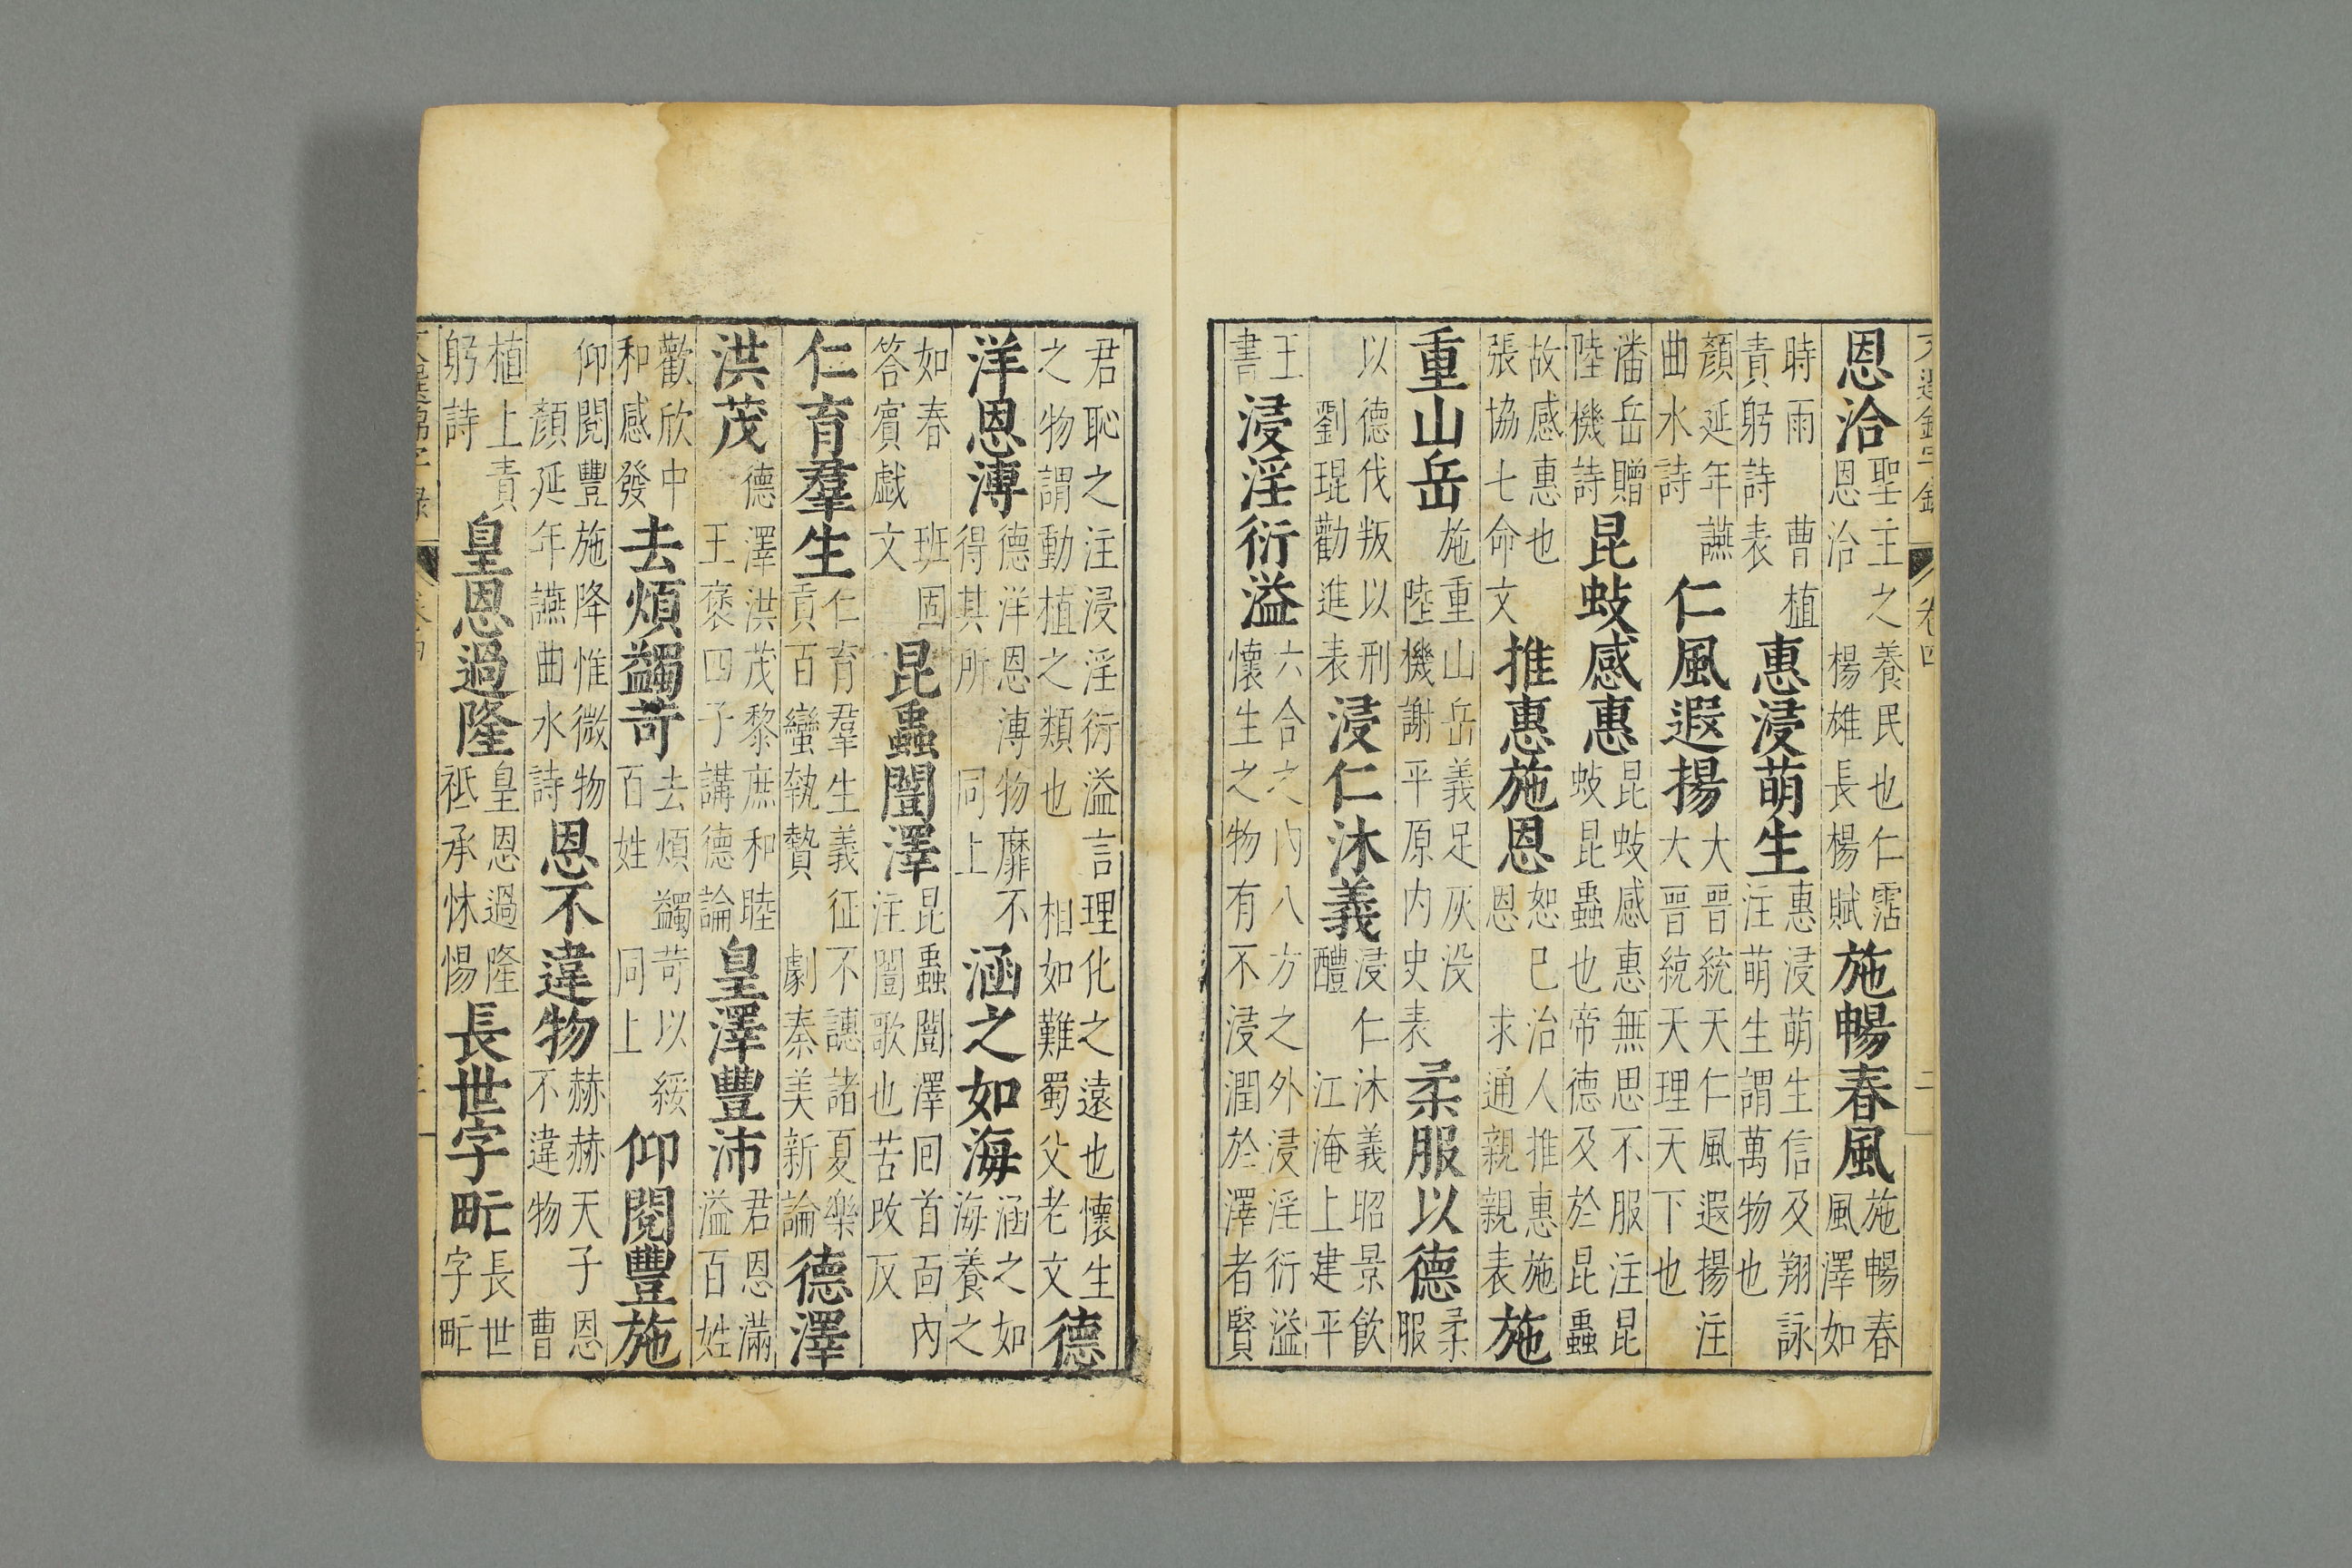 卷四
二
恩洽聖主之養民也仁霑恩洽楊雄長楊賦施暢春風施暢春風澤如
時雨曹植責躬詩表惠浸萌生惠浸萌生信及翔詠注萌生謂萬物也
顏延年讌曲水詩仁風遐揚大晉統天仁風遐揚注大晉統天理天下也
潘岳贈陸機詩昆蚑感惠昆蚑感惠無思不服注昆蚑昆蟲也帝德及於昆蟲
故感惠也張協七命文推惠施恩恕己治人推惠施恩求通親親表施
重山岳施重山岳義足灰没陸機謝平原内史表柔服以德柔服
以德伐叛以刑劉琨勸進表浸仁沐義浸仁沐義昭景飲醴江淹上建平
王書浸淫衍溢六合之内八方之外浸淫衍溢懷生之物有不浸潤於澤者賢
君恥之注浸淫衍溢言理化之遠也懷生之物謂動植之類也相如難蜀父老文德
洋恩溥德洋恩溥物靡不得其所同上涵之如海涵之如海養之
如春班固答賓戲文昆蟲闓澤昆蟲闓澤囘首面內注闓歌也苦改反
仁育羣生仁育羣生義征不譓諸夏樂貢百蠻執贄劇秦美新論德澤
洪茂德澤洪茂黎庶和睦王褒四子講德論皇澤豐沛君恩滿溢百姓
歡欣中和感發去煩蠲苛去煩蠲苛以綏百姓同上仰閱豐施
仰閱豐施降惟微物顏延年讌曲水詩恩不違物赫赫天子恩不違物曹
植上責躬詩皇恩過隆皇恩過隆祗承怵惕長世字甿長世字甿